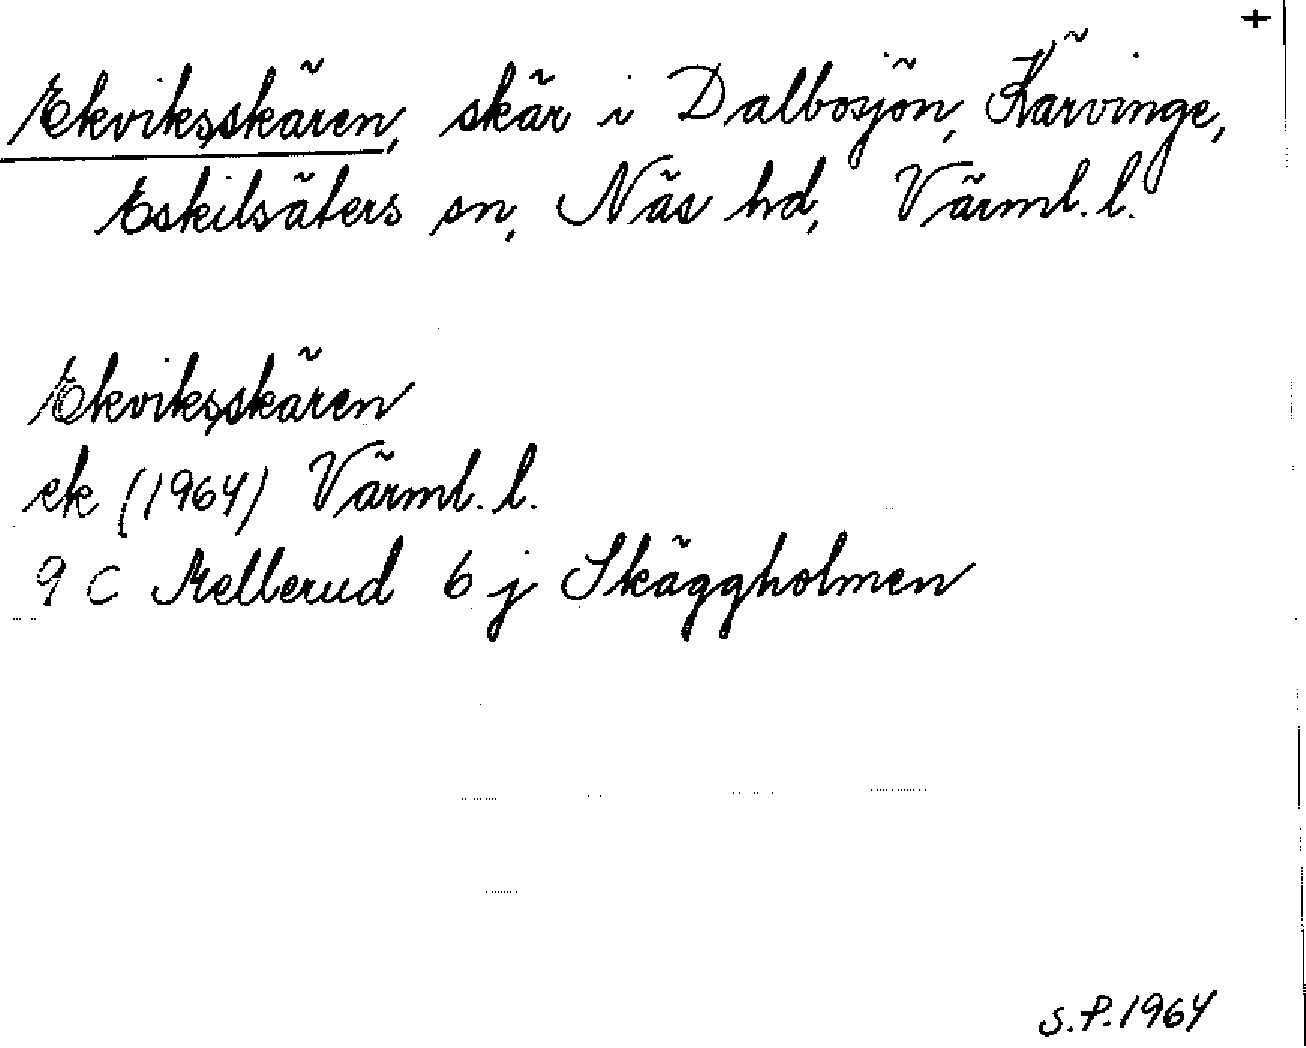 +
Ekviksskären, skär i Dalbosjön, Kärvinge,
Eskilsäters sn, Näs hd, Värml. l.
Ekviksskären
ek (1964) Värml. l.
9 C Mellerud 6 j Skäggholmen
S.P. 1964